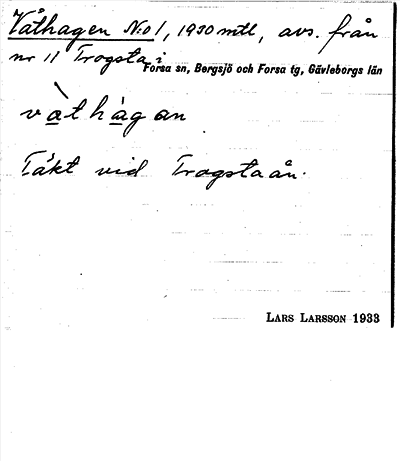 Våthagen No 1, 1930 mtl, avs. från
nr 11 Trogsta i
Forsa sn, Bergsjö och Forsa tg, Gävleborgs län
vàthàgan
Täkt vid Trogstaån.
LARS LARSSON 1933